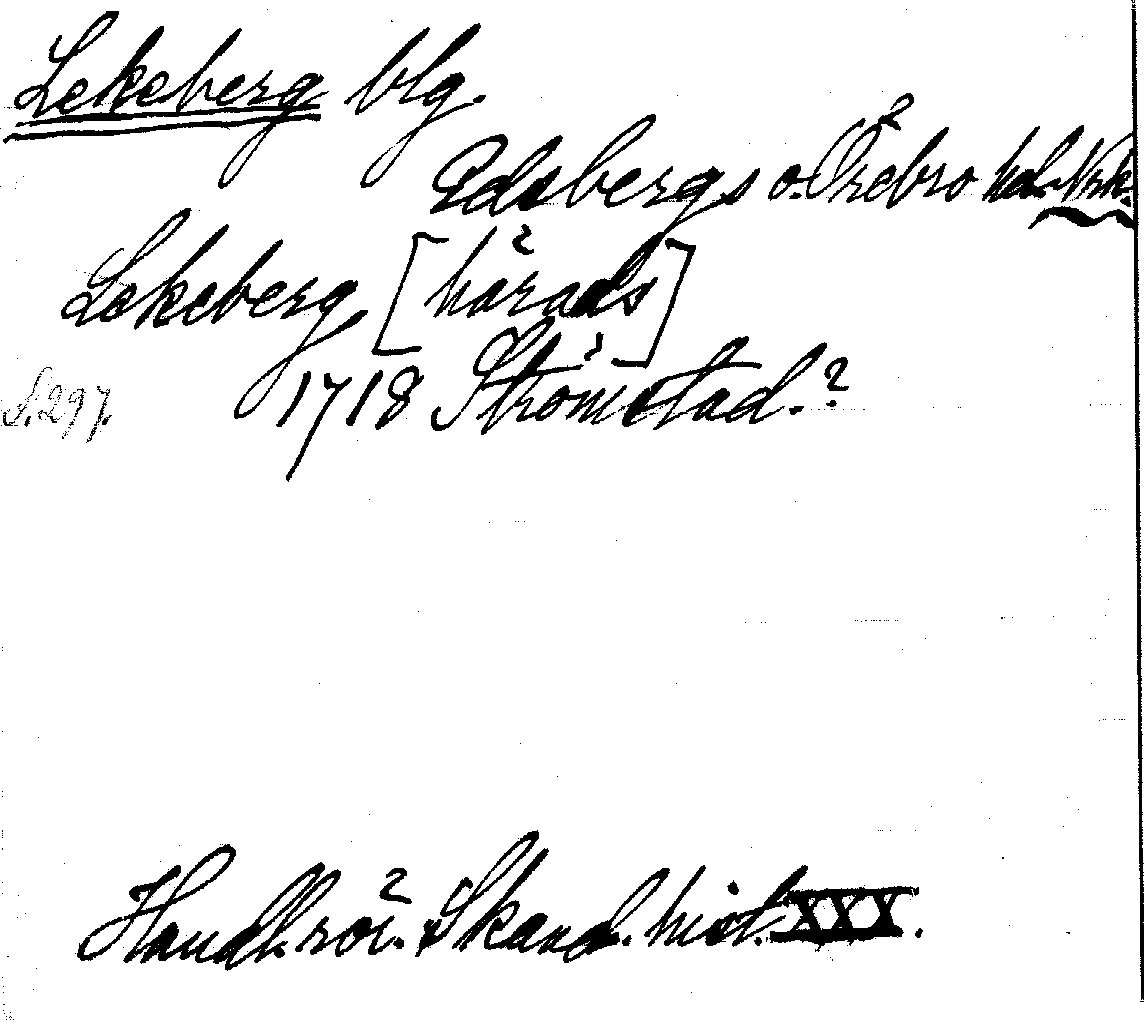 Lekeberg blg.
Edsbergs o. Örebro hd. Nrk.
Lekeberg [härads]
S. 297. 1718 Strömstad.?
Handl. rör. Skand. hist. XXX.